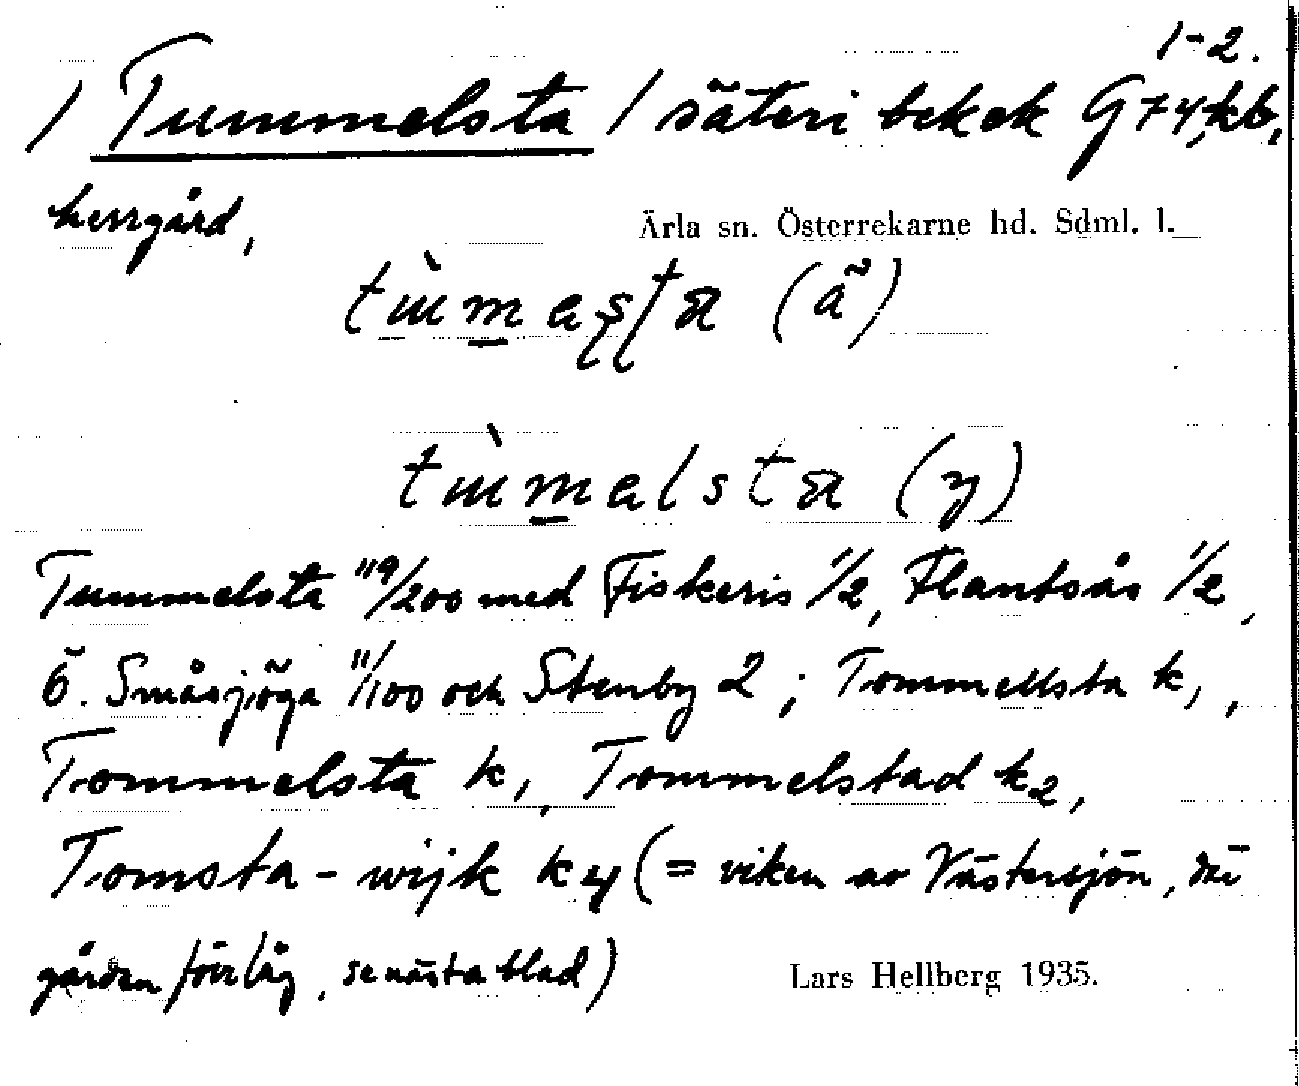 1-2.
/ Tummelsta / säteri bek ek G74, kb,
herrgård,
Ärla sn. Österrekarne hd. Sdml. l.
(ã)
(y)
Tummelsta 119/200 med Fiskeris 1/2, Flantsås 1/2,
Ö. Småsjöga 11/100 och Stenby 2; Tommellsta k,,
Tommelsta k,, Tommelstad k2,
Tomsta-wijk k4 (= viken av Västersjön, där
gården förr låg, se nästa blad)
Lars Hellberg 1935.